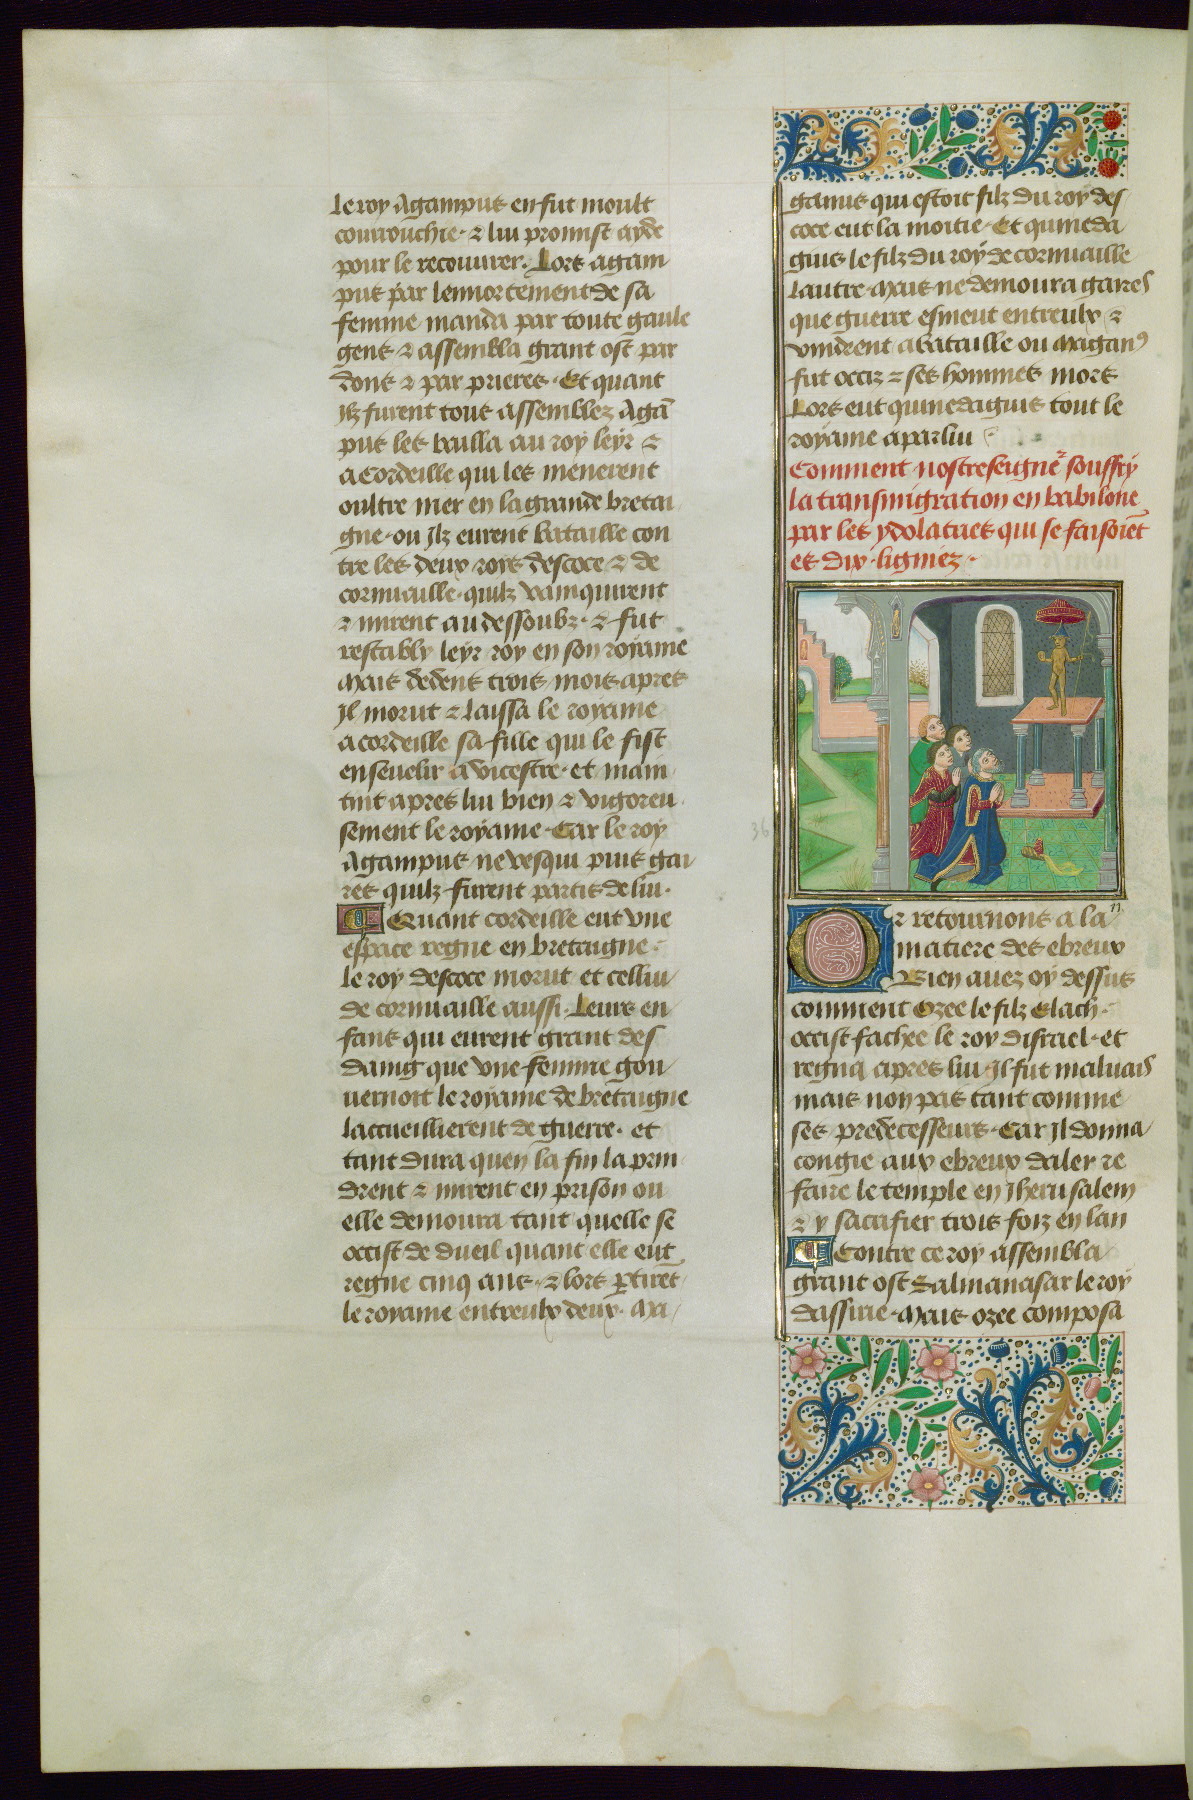 le roy Agampus en fut moult
courrouchie · ⁊ lui promist ayde
pour le recouurer · Lors agam
pus par lennortement de sa
femme manda par toute gaule
gens ⁊ assembla grant ost par
dons ⁊ par prieres · Et quant
Ilz furent tous assemblez Agā
pus les bailla au roy leyr ⁊
a Cordeille qui les menerent
oultre mer en la grande bretai
gne · ou Ilz eurent bataille con
tre les deux rois descoce ⁊ de
cornuaille · quilz vainquirent
⁊ mirent au dessoubz · ⁊ fut
restably leyr roy en son royame
Mais dedens trois mois apres
Il morut ⁊ laissa le royame
a cordeille sa fille qui le fist
enseuelir a vicestre · et main
tint apres lui bien ⁊ vigoreu
sement le royame · Car le roy
Agampus ne vesqui puis gai
res quilz furent partis de lui ·
Quant cordeille eut vne
espace regne en bretaigne ·
le roy descoce morut et cellui
de cornuaille aussi · Leurs en
fans qui eurent grant des
daing que vne femme gou
uernoit le royame de bretaigne
laccueillierent de guerre · et
tant dura quen la fin la prin
drent ⁊ mirent en prison ou
elle demoura tant quelle se
occist de dueil quant elle eut
regne cinq ans · ⁊ lors ꝑtirēt
le royame entreulx deux · Ma
ganus qui estoit filz du roy des
coce eut la moitie · Et quineda
gius le filz du roy de cornuaille
lautre · Mais ne demoura gaires
que guerre esmeut entreulx ⁊
vindrent a bataille ou Maganꝰ
fut occiz ⁊ ses hommes mors
Lors eut quinedagius tout le
royame a par lui
Comment nostreseignēr souffry
la transmigration en babilone
par les ydolatries qui se faisoiēt
es dix ligniez ·
36
Or retournons a la
matiere des ebreux
Bien auez oy dessus
comment Ozee le filz Elach ·
occist fachee le roy disrael · et
regna apres lui · Il fut maluais
mais non pas tant comme
ses predecesseurs · Car Il donna
congie aux ebreux daler re
faire le temple en Jherusalem
⁊ y sacrifier trois foiz en lan
Contre ce roy assembla
grant ost Salmanasar le roy
dassirie · Mais ozee composa